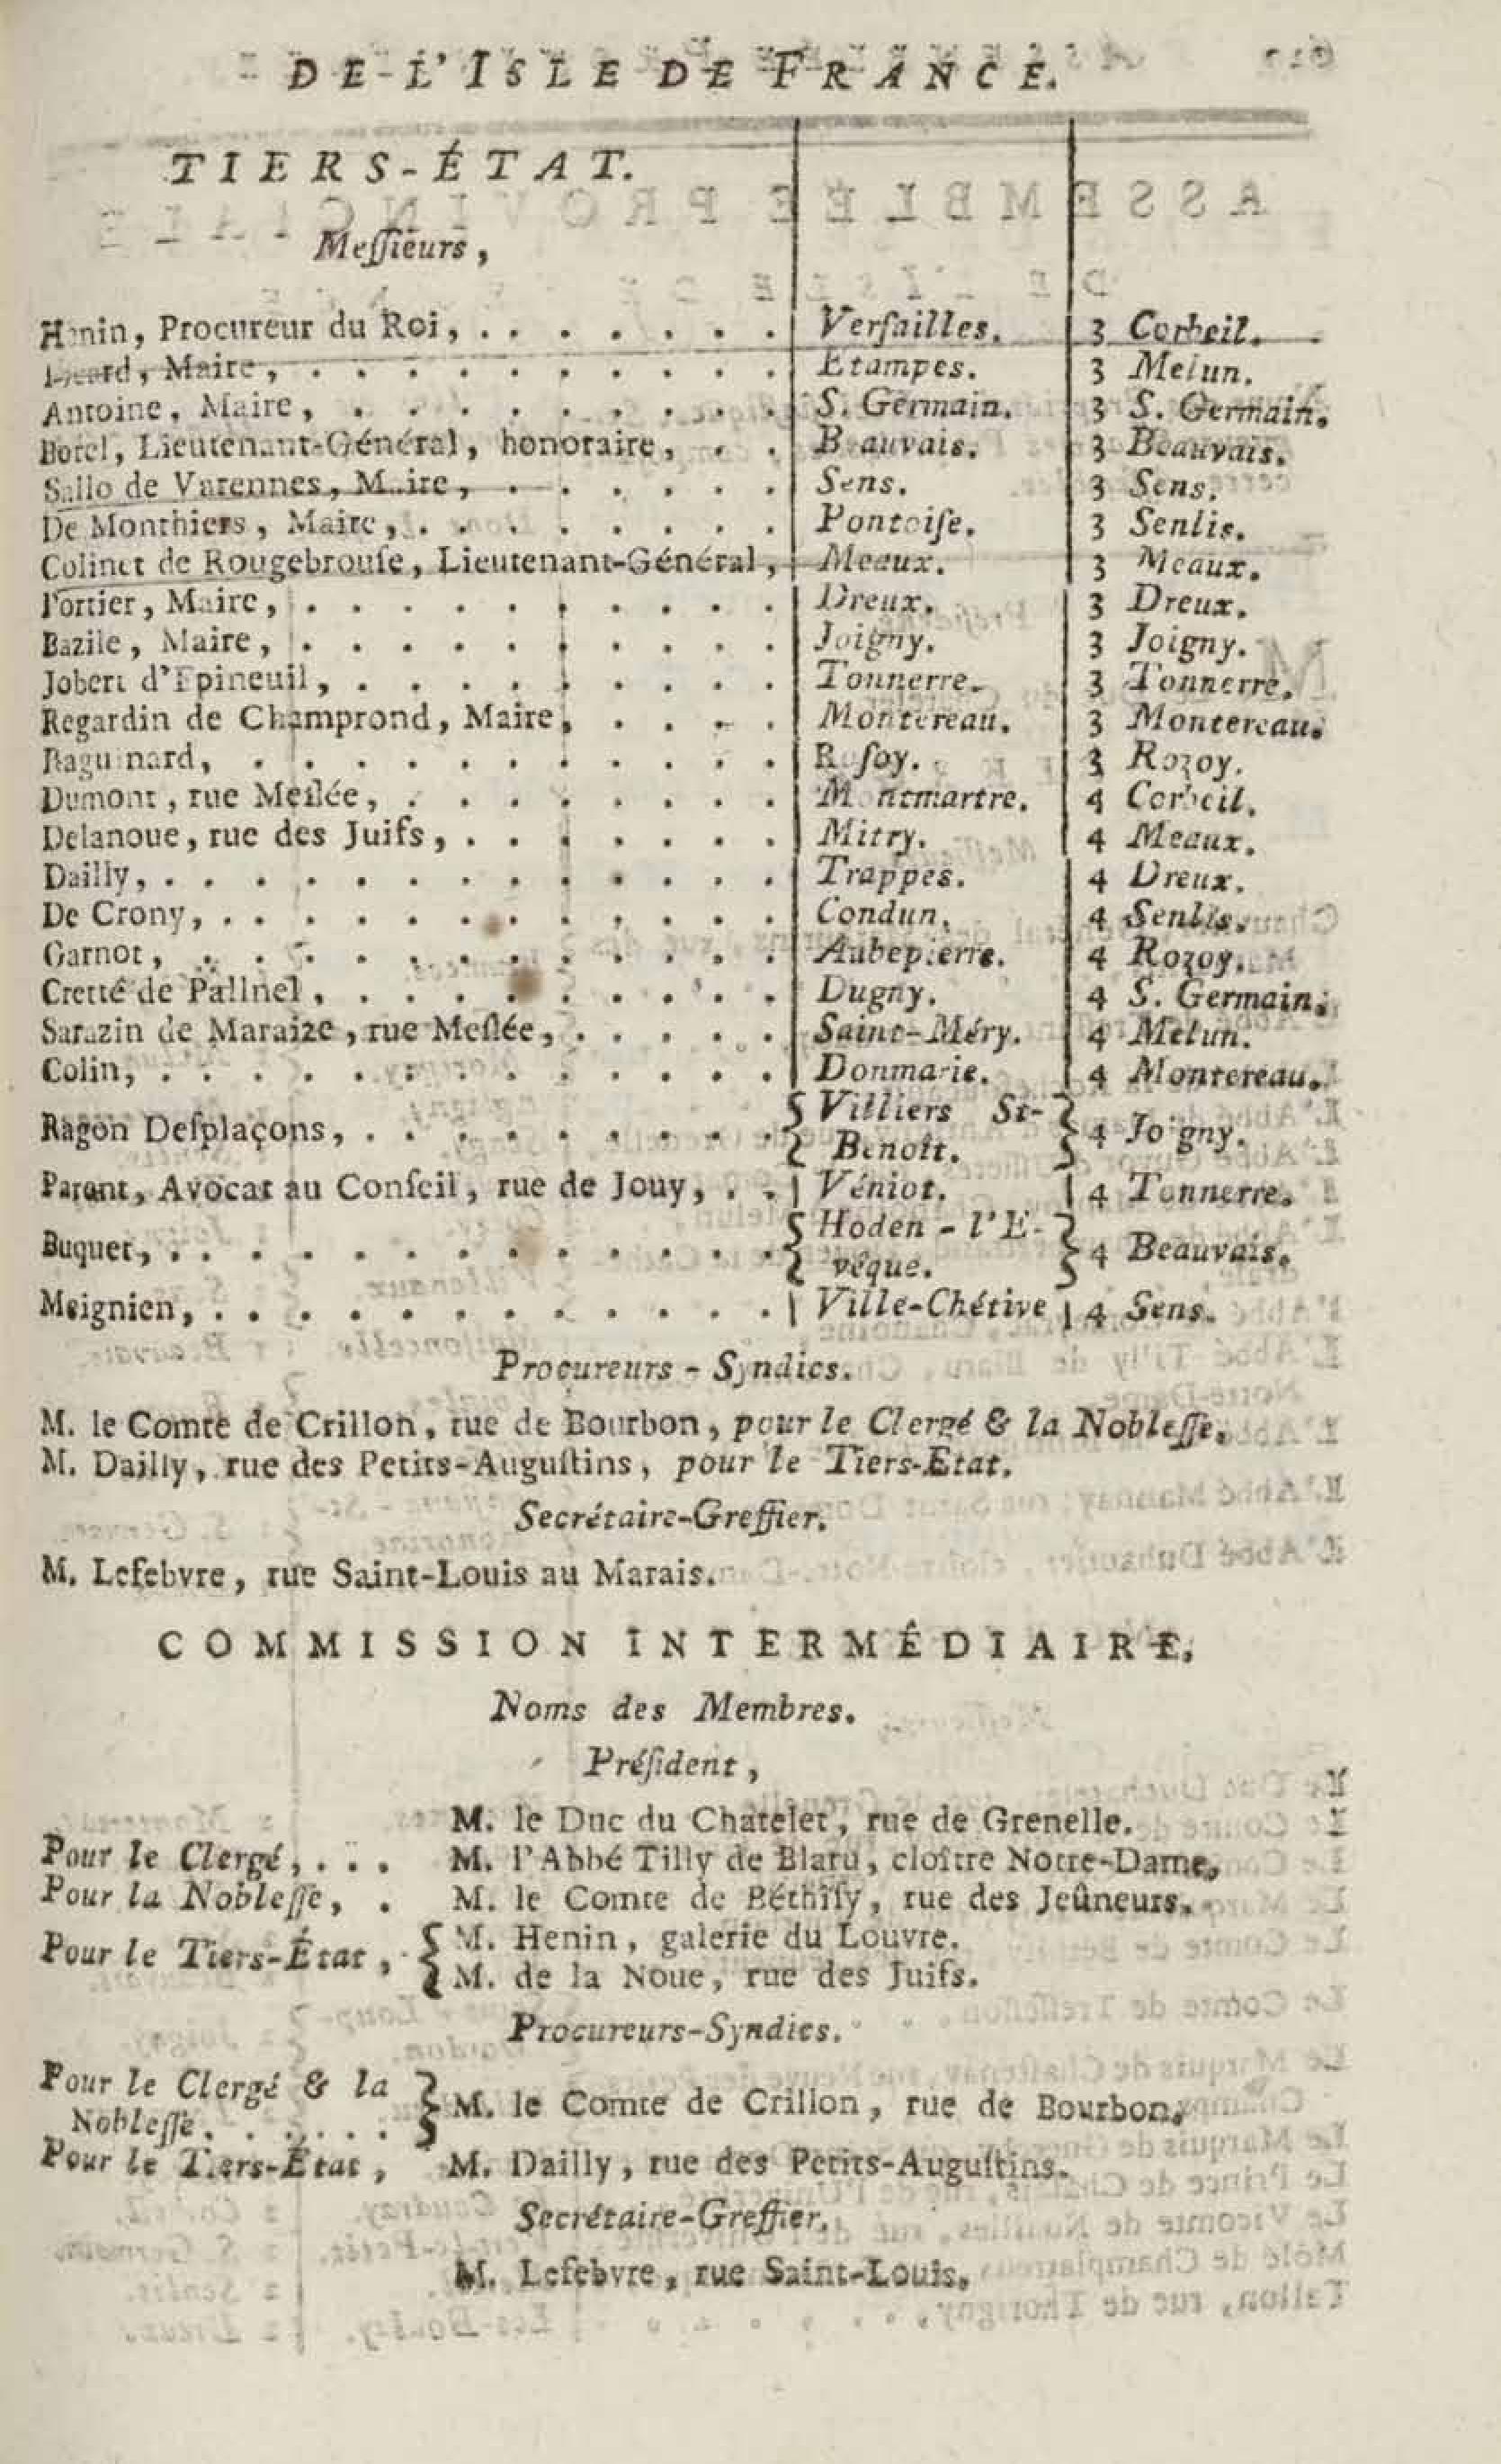 DE L'ISLE DE FRANCE.
TIERS-ÉTAT.
Meſſieurs,
Henin, Procureur du Roi, . . . . . . . Verſailles. 3 Corbeil.
Maire, . . . . . . . . . . Etampes. 3 Melun.
Antoine, Maire, . . . . . . . . . S. Germain. 3 S. Germain.
Borel, Lieutenant-Général, honoraire, . . Beauvais. 3 Beauvais.
Sallo de Varennes, Maire, . . . . . . Sens. 3 Sens.
De Monthiers, Maire, . . . . . . . . Pontoiſe. 3 Senlis.
Colinet de Rougebrouſe, Lieutenant-Général, Meaux. 3 Meaux.
Portier, Maire, . . . . . . . . . . Dreux. 3 Dreux.
Bazile, Maire, . . . . . . . . . . Joigny. 3 Joigny.
Jobert d'Epineuil, . . . . . . . . . Tonnerre. 3 Tonnerre.
Regardin de Champrond, Maire, . . . . Montereau. 3 Montereau.
Raguinard, . . . . . . . . . . . Roſoy. 3 Rozoy.
Dumont, rue Meſlée, . . . . . . . . Montmartre. 4 Corbeil.
Delanoue, rue des Juifs, . . . . . . . Mitry. 4 Meaux.
Dailly, . . . . . . . . . . . . . Trappes. 4 Dreux.
De Crony, . . . . . . . . . . . . Condun. 4 Senlis.
Garnot, . . . . . . . . . . . . Aubepierre. 4 Rozoy.
Cretté de Pallnel, . . . . . . . . . Dugny. 4 S. Germain.
Sarazin de Maraize, rue Meſlée, . . . . . Saint-Méry. 4 Melun.
Colin, . . . . . . . . . . . . . Donmarie. 4 Montereau.
Ragon Deſplaçons, . . . . . . . . . { Villiers St-Benoît. } 4 Joigny.
Parent, Avocat au Conſeil, rue de Jouy, . . Véniot. 4 Tonnerre.
Buquet, . . . . . . . . . . . . . { Hoden-l'Evêque. } 4 Beauvais.
Meignien, . . . . . . . . . . . . Ville-Chétive 4 Sens.
Procureurs-Syndics.
M. le Comte de Crillon, rue de Bourbon, pour le Clergé & la Nobleſſe.
M. Dailly, rue des Petits-Auguſtins, pour le Tiers-Etat.
Secrétaire-Greffier.
M. Lefebvre, rue Saint-Louis au Marais.
COMMISSION INTERMÉDIAIRE.
Noms des Membres.
Préſident,
M. le Duc du Chatelet, rue de Grenelle.
Pour le Clergé, . . . M. l'Abbé Tilly de Blaru, cloître Notre-Dame.
Pour la Nobleſſe, . M. le Comte de Béthiſy, rue des Jeûneurs.
Pour le Tiers-État, { M. Henin, galerie du Louvre.
M. de la Noue, rue des Juifs.
Procureurs-Syndics.
Pour le Clergé & la
Nobleſſe. . . . . . } M. le Comte de Crillon, rue de Bourbon.
Pour le Tiers-Etat, M. Dailly, rue des Petits-Auguſtins.
Secrétaire-Greffier.
M. Lefebvre, rue Saint-Louis.